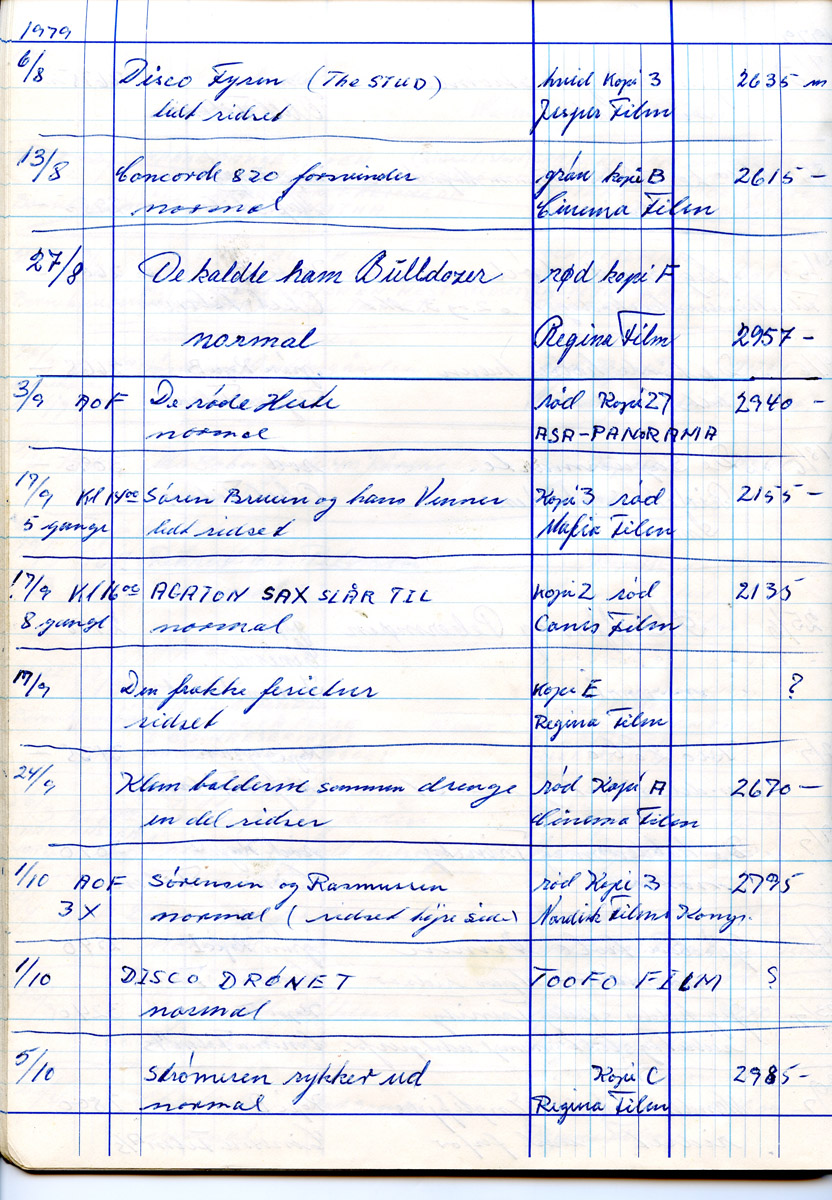 1979
6/8 Disco Fyren (The STUD) hvid Kopi 3 2635 m
lidt ridset Jesper Film
13/8 Concorde 820 forsvinder grøn kopi B 2615 -
normal Cinema Film
27/8 De kaldte ham Bulldozer rød kopi F
normal Regina Film 2957 -
3/9 AOF De røde Heste rød Kopi 27 2940 -
normal ASA-PANORAMA
17/9 Kl 14 00 Søren Bruun og hans Venner Kopi 3 rød 2155 -
5 gange lidt ridset Mafia Film
17/9 Kl 16 00 AGATON SAX SLÅR TIL Kopi 2 rød 2135
8 gange normal Canis Film
17/9 Den frække ferietur Kopi E ?
ridset Regina Film
24/9 Klem balderne sammen drenge rød Kopi A 2670 -
en del ridser Cinema Film
1/10 AOF Sørensen og Rasmussen rød Kopi 3 2795
3 X normal (ridset højre side) Nordisk Films Komp.
1/10 DISCO DRØNET TOOFO FILM ?
normal
5/10 Strømeren rykker ud Kopi C 2985 -
normal Regina Film